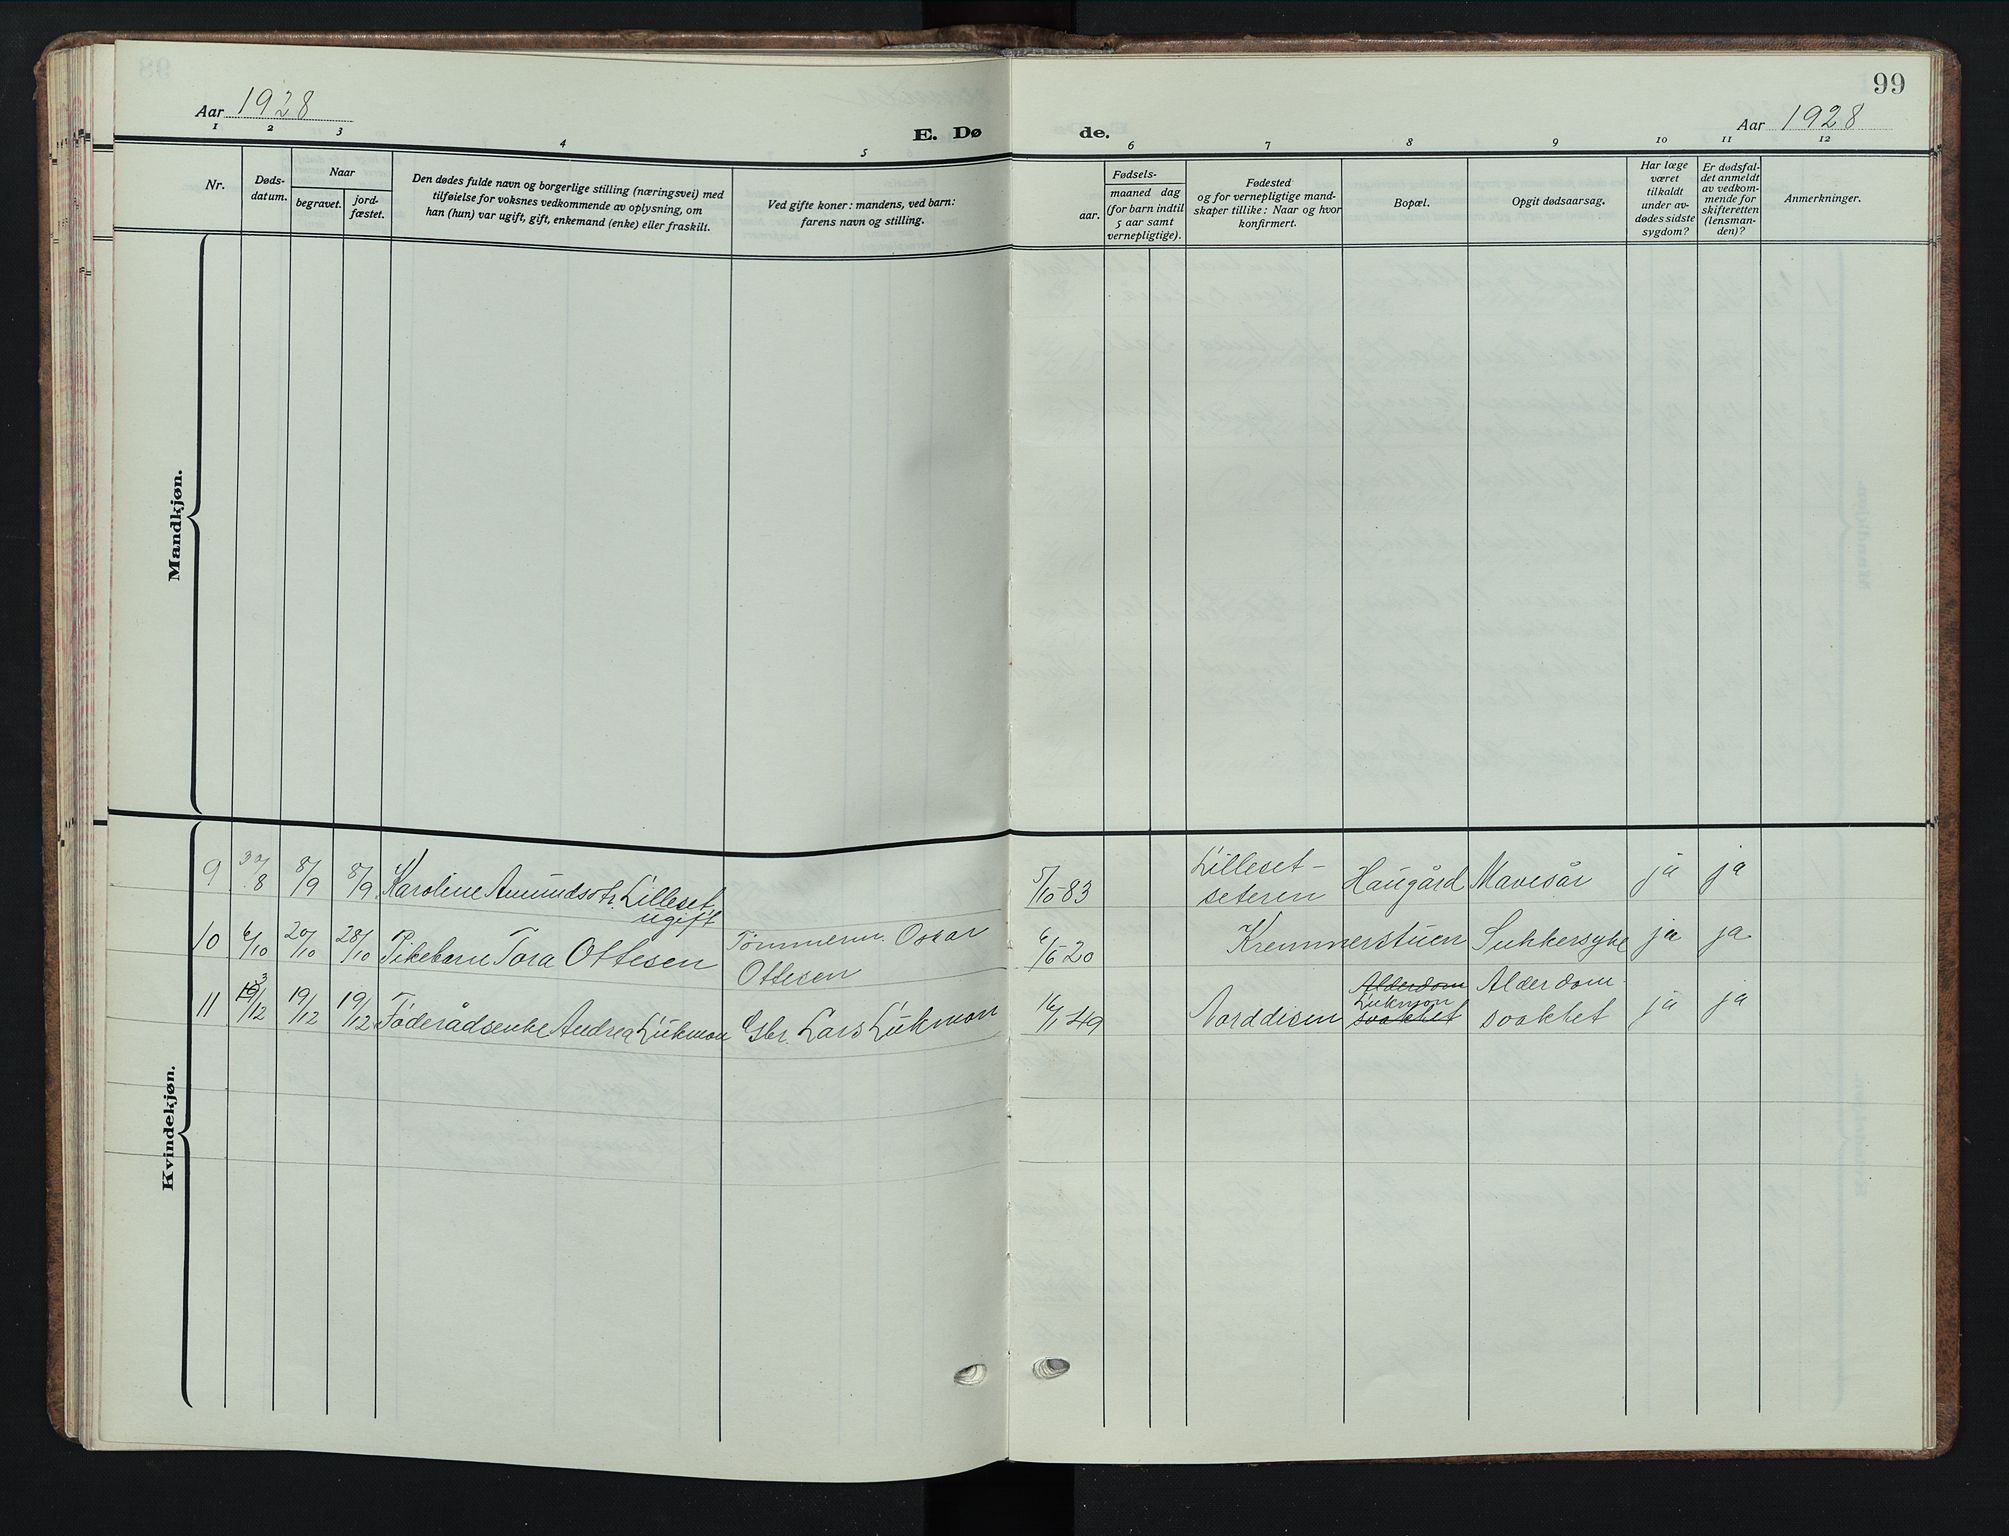 99
Aar 1928
E. Dø de.
Aar 1928
1 2 3 4 5 6 7 8 9 10 11 12
Nr.
Døds-
datum.
Naar
begravet.
jord-
fæstet.
Den dødes fulde navn og borgerlige stilling (næringsvei) med
tilføielse for voksnes vedkommende av oplysning, om
han (hun) var ugift, gift, enkemand (enke) eller fraskilt.
Ved gifte koner: mandens, ved barn:
farens navn og stilling.
Fødsels-
aar.
maaned dag
(for barn indtil
5 aar samt
vernepligtige).
Fødested
og for vernepligtige mand-
skaper tillike: Naar og hvor
konfirmert.
Bopæl.
Opgit dødsaarsag.
Har læge
været
tilkaldt
under av-
dødes sidste
sygdom?
Er dødsfal-
det anmeldt
av vedkom-
mende for
skifteretten
(lensman-
den)?
Anmerkninger.
Mandkjøn.
Kvindekjøn.
9 30/8 8/9 8/9 Karoline Amundsdtr. Lilleset
ugift
5/10-83 Lilleset-
seteren
Haugård Mavesår ja ja
10 6/10 20/10 28/10 Pikebarn Tora Ottesen Tømmerm. Oskar
Ottesen
6/6-20 Kremmerstuen Sukkersyke ja ja
11 13/12 19/12 19/12 Føderådsenke Andrea Lukmon Gbr. Lars Lukmon
16/1 49 Norddisen
Alderdom
Lukmon
svakhet
Alderdom-
svakhet
ja ja